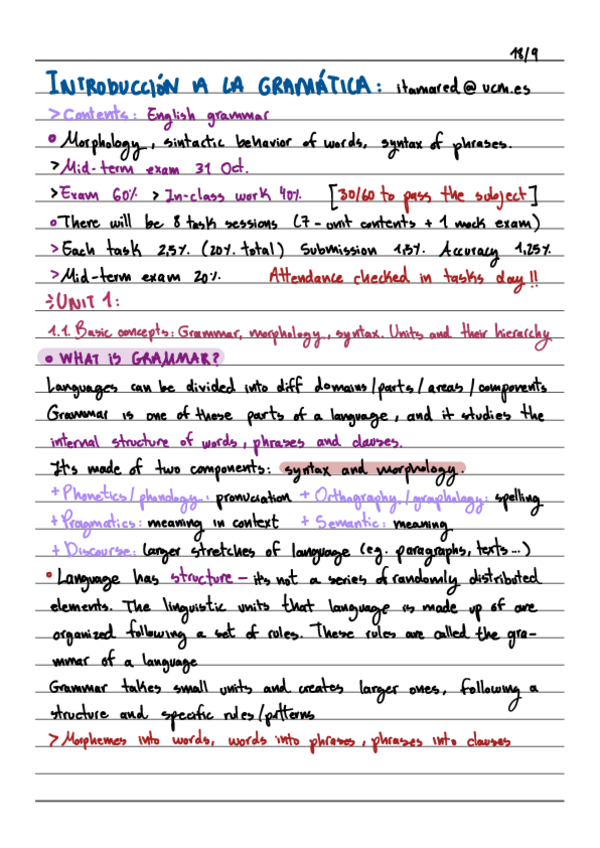 18/9
INTRODUCCIÓN A LA GRAMÁTICA: itamared@ucm.es
> Contents: English grammar
• Morphology, sintactic behavior of words, syntax of phrases.
> Mid-term exam 31 Oct.
> Exam 60% > In-class work 40% [30/60 to pass the subject]
• There will be 8 task sessions (7-unit contents + 1 mock exam)
> Each task 2,5% (20% total) Submission 1,5% Accuracy 1,25%
> Mid-term exam 20% Attendance checked in tasks day!!
UNIT 1:
1.1. Basic concepts: Grammar, morphology, syntax. Units and their hierarchy
• WHAT IS GRAMMAR?
Languages can be divided into diff domains/parts/areas/components
Grammar is one of these parts of a language, and it studies the
internal structure of words, phrases and clauses.
It's made of two components: syntax and morphology.
+ Phonetics/phonology: pronunciation + Orthography/graphology: spelling
+ Pragmatics: meaning in context + Semantic: meaning
+ Discourse: larger stretches of language (eg. paragraphs, texts...)
• Language has structure - it's not a series of randomly distributed
elements. The linguistic units that language is made up of are
organized following a set of rules. These rules are called the gra-
mmar of a language
Grammar takes small units and creates larger ones, following a
structure and specific rules/patterns
> Morphemes into words, words into phrases, phrases into clauses